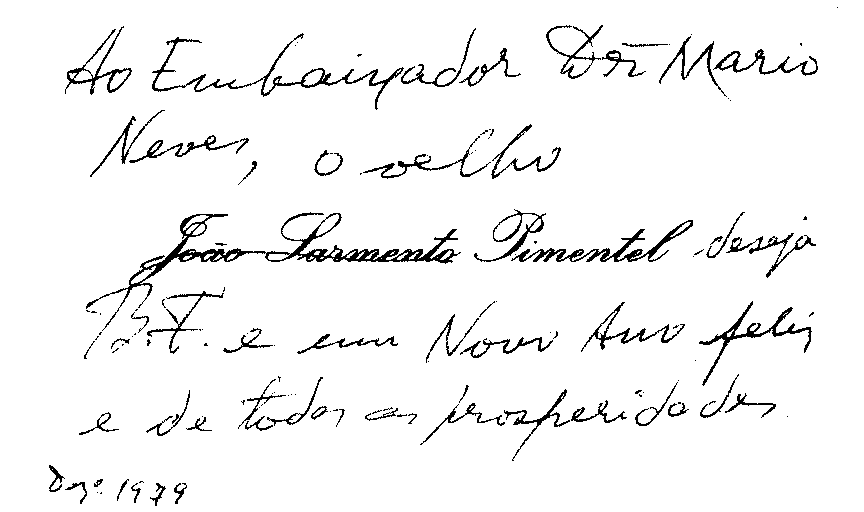 Ao Embaixador Dr. Mario
Neves, o velho
João Sarmento Pimentel deseja
B.F. e um Novo Ano feliz
e de todas as prosperidades.
Dezº 1979